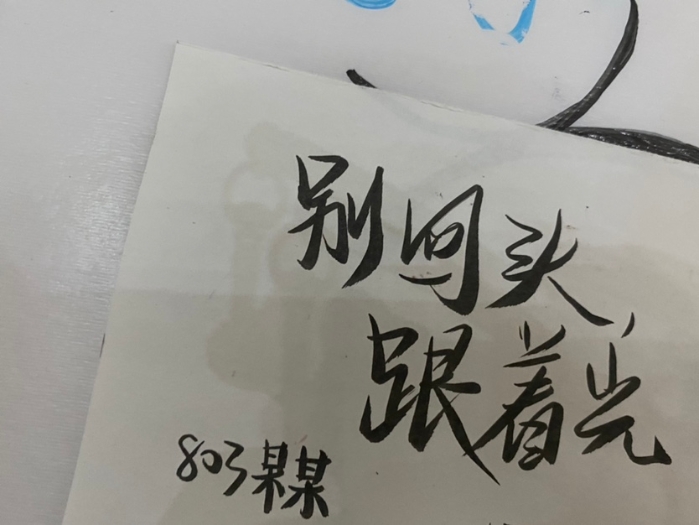 别回头
跟着光
803某某